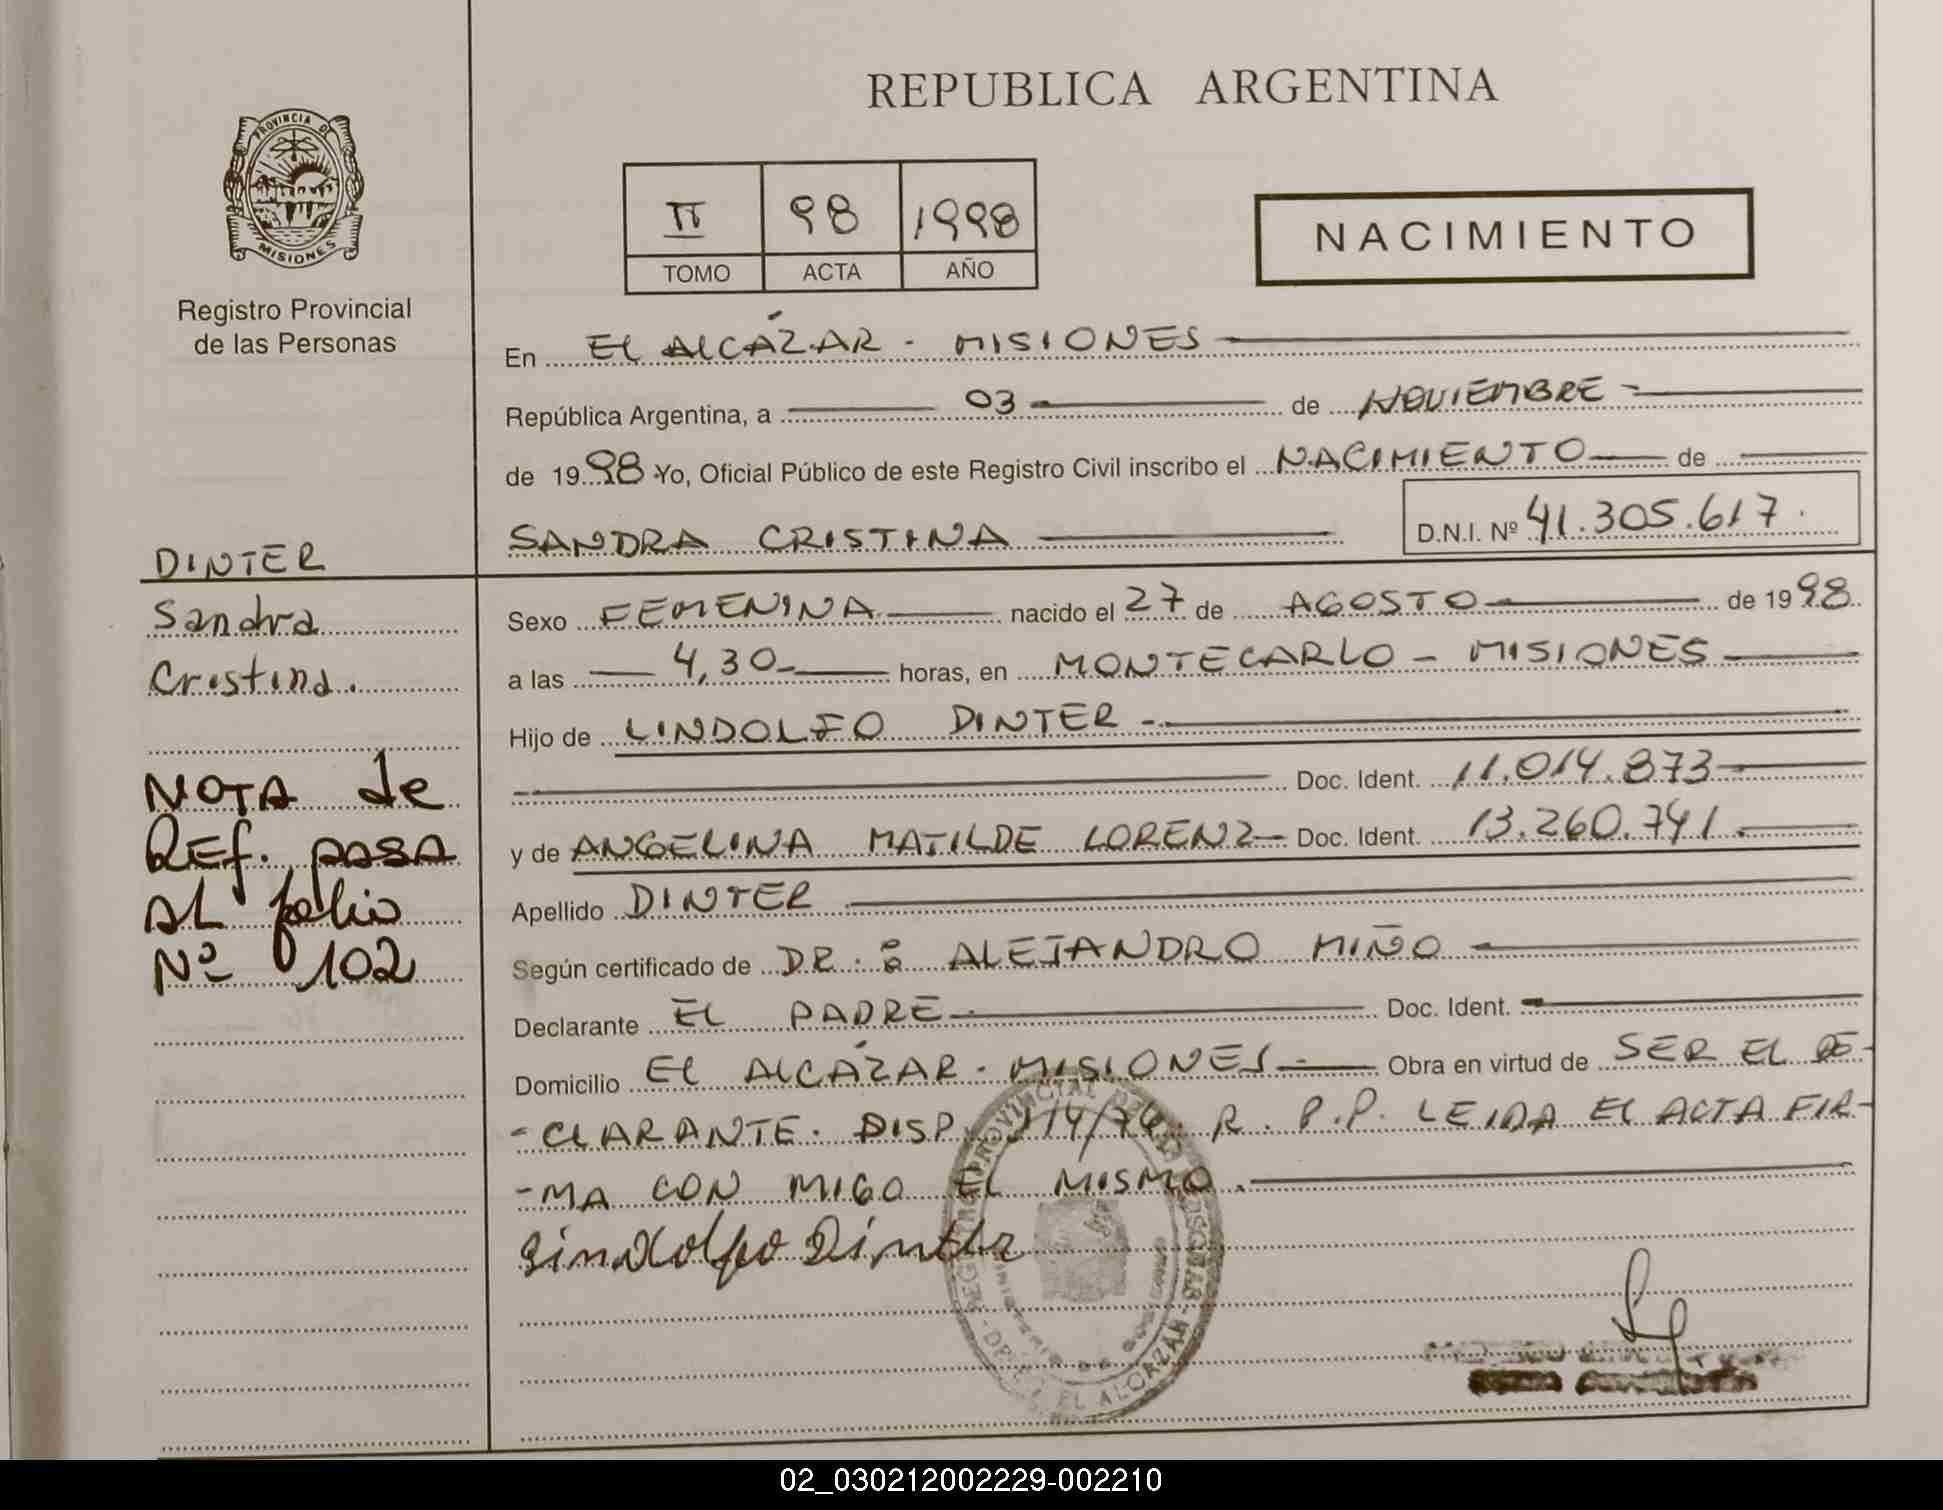 REPUBLICA ARGENTINA
PROVINCIA DE
MISIONES
Registro Provincial
de las Personas
II 98 1998
TOMO ACTA AÑO
NACIMIENTO
En EL ALCÁZAR - MISIONES
República Argentina, a 03 de NOVIEMBRE
de 1998 Yo, Oficial Público de este Registro Civil inscribo el NACIMIENTO de
SANDRA CRISTINA D.N.I. Nº 41.305.617.
DINTER
Sandra
Cristina.
NOTA de
REf. PASA
AL folio
Nº 102
Sexo FEMENINA nacido el 27 de AGOSTO de 1998
a las 4,30 horas, en MONTECARLO - MISIONES
Hijo de LINDOLFO DINTER -
Doc. Ident. 11.014.873
y de ANGELINA MATILDE LORENZ Doc. Ident. 13.260.741
Apellido DINTER
Según certificado de DR.: ALEJANDRO MIÑO
Declarante EL PADRE Doc. Ident.
Domicilio EL ALCÁZAR - MISIONES Obra en virtud de SER EL DE-
-CLARANTE. DISP. 114/74. R.P.P. LEIDA EL ACTA FIR-
-MA CON MIGO EL MISMO.
Lindolfo Dinter
EL ALCAZAR
02_030212002229-002210